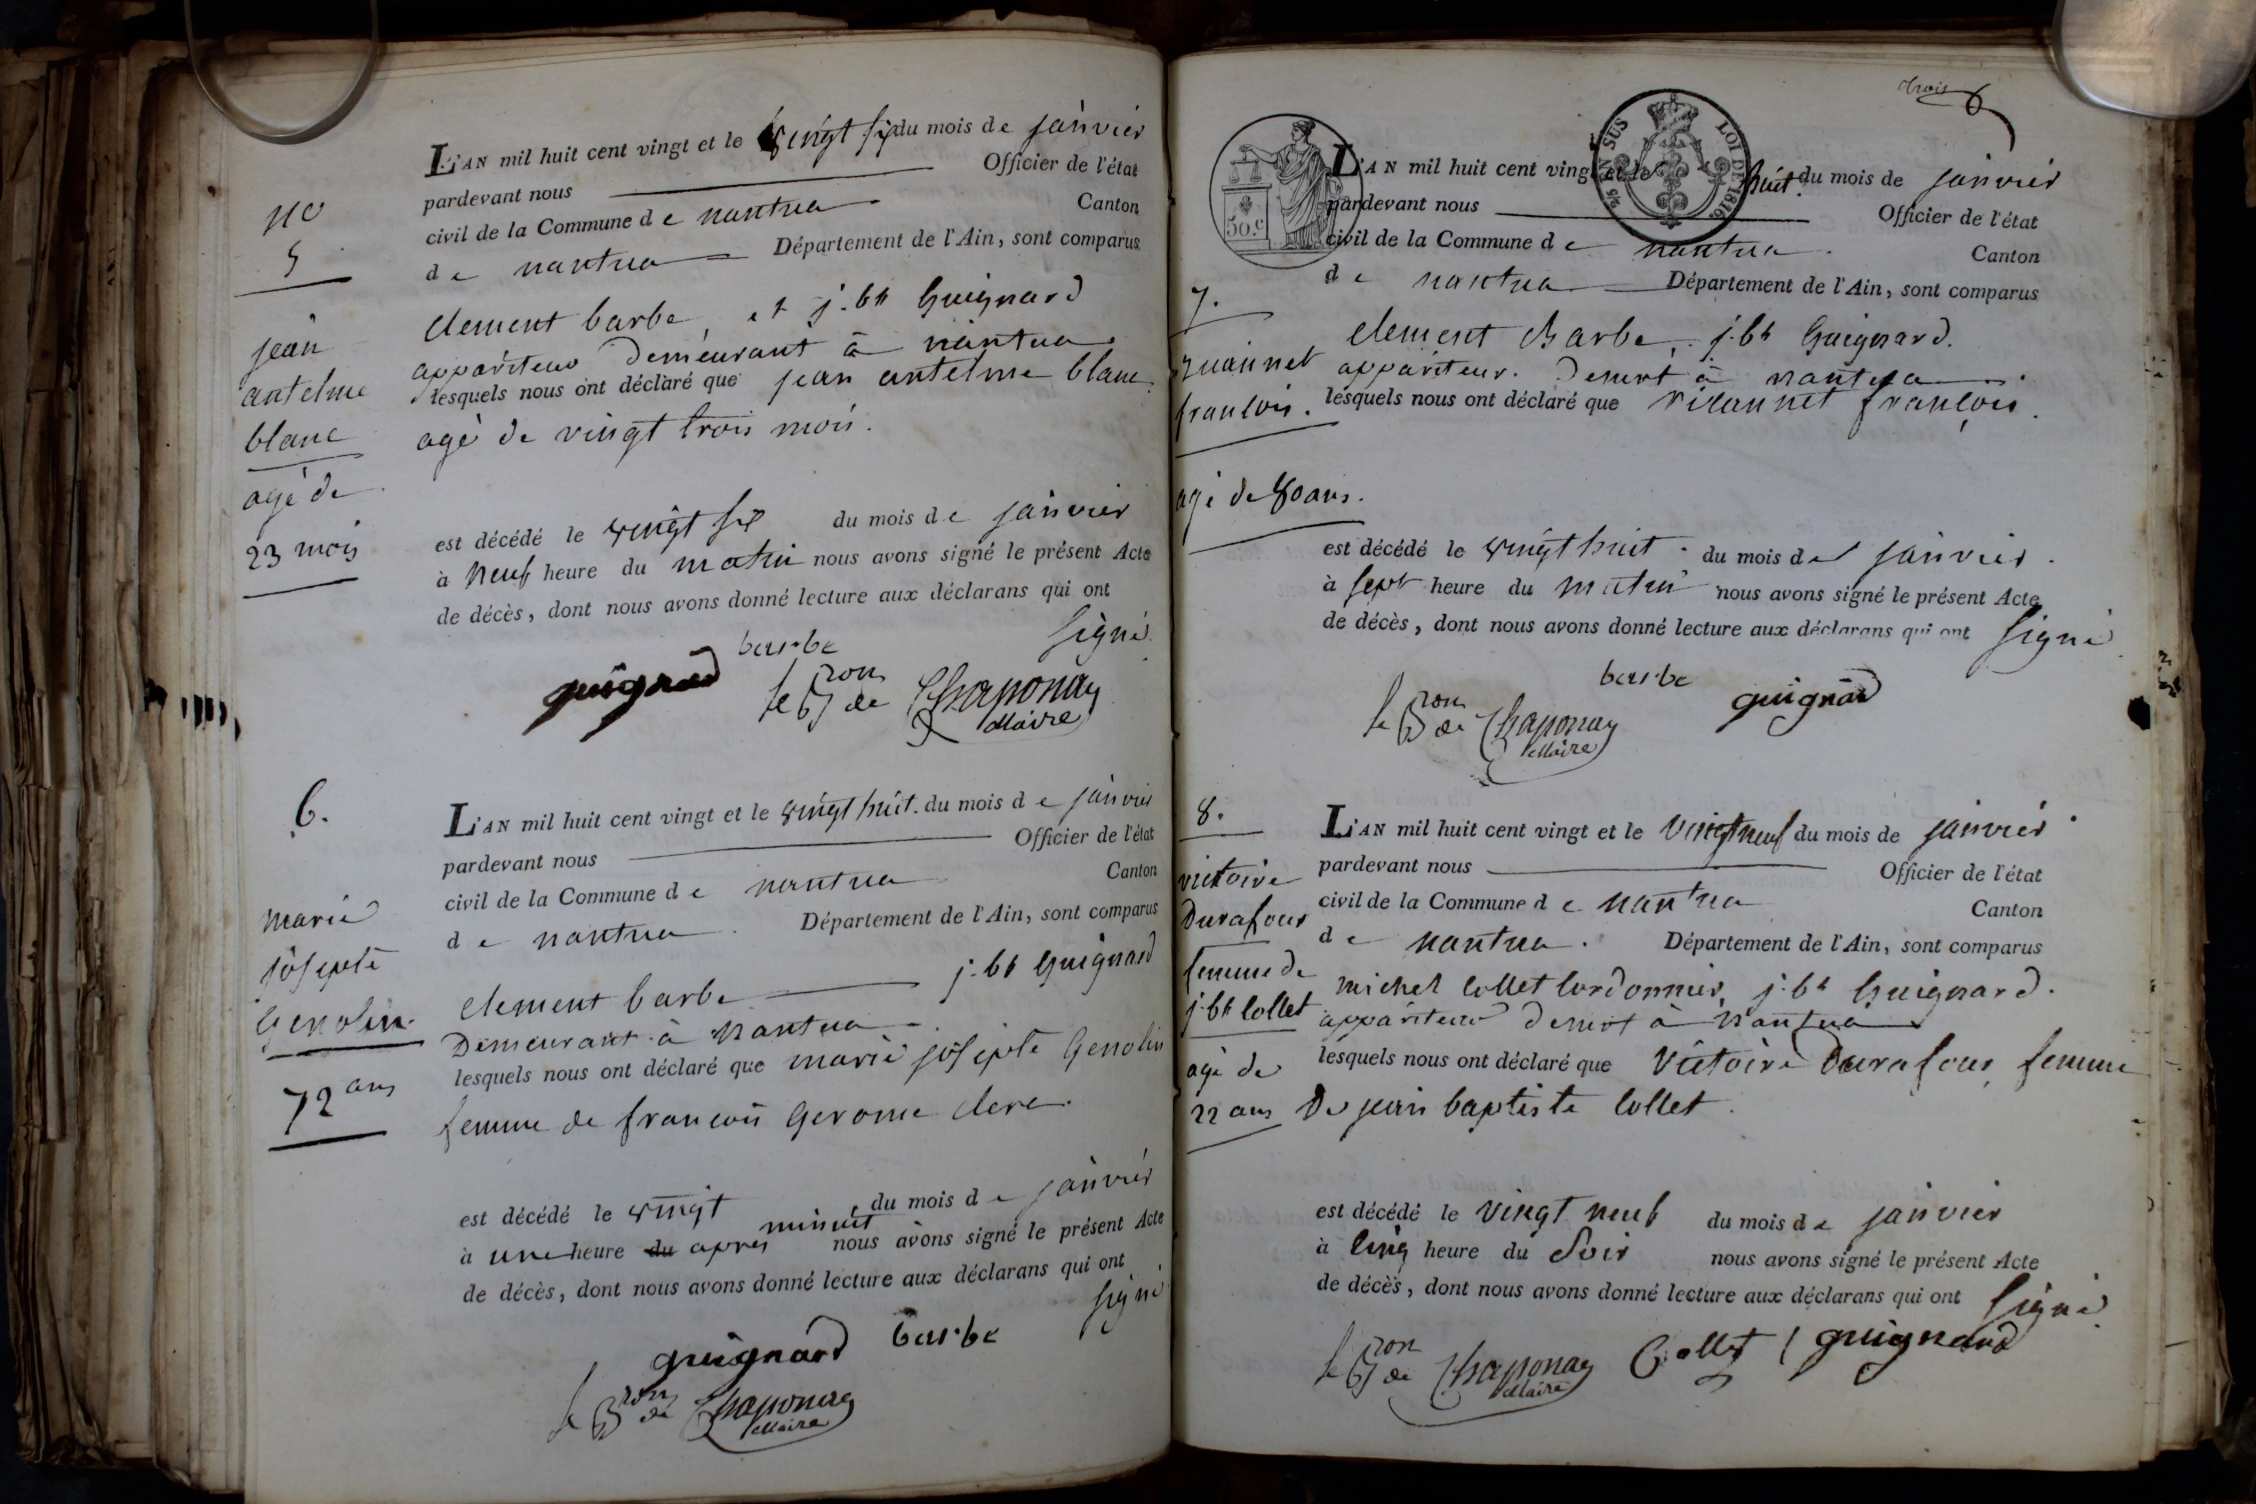 L'AN mil huit cent vingt et le vingt six du mois de janvier
pardevant nous Officier de l'état
civil de la Commune de nantua Canton
de nantua Département de l'Ain, sont comparus
no
5
jean
antelme
blanc
agé de
23 mois
Clement barbe, et j. bte Guignard
appariteur demeurant à nantua
lesquels nous ont déclaré que jean antelme blanc
agé de vingt trois mois.
est décédé le vingt six du mois de janvier
à neuf heure du matin nous avons signé le présent Acte
de décès, dont nous avons donné lecture aux déclarans qui ont
signé
barbe
guignard le Bron de Chaponay
Maire
6.
L'AN mil huit cent vingt et le vingt huit. du mois de janvier
pardevant nous Officier de l'état
civil de la Commune de nantua Canton
de nantua. Département de l'Ain, sont comparus
marie
josephte
Genolin
72 ans
Clement barbe j. bte Guignard
Demeurant à nantua
lesquels nous ont déclaré que marie josephte Genolin
femme de françois Gerome clerc.
est décédé le vingt du mois de janvier
à une heure du apres minuit nous avons signé le présent Acte
de décès, dont nous avons donné lecture aux déclarans qui ont
signé
guignard barbe
le Bron de Chaponay
Maire
trois
50.c
EN SUS LOI DE 1816.
L'AN mil huit cent vingt et le huit du mois de janvier
pardevant nous Officier de l'état
civil de la Commune de nantua. Canton
de nantua Département de l'Ain, sont comparus
7.
françois.
agé de 80 ans.
Clement Barbe, j. bte Guignard.
appariteur. demt à nantua
lesquels nous ont déclaré que françois.
est décédé le vingt huit. du mois de janvier.
à sept heure du matin nous avons signé le présent Acte
de décès, dont nous avons donné lecture aux déclarans qui ont signé
barbe guignard
le Bron de Chaponay
Maire
8.
L'AN mil huit cent vingt et le vingt neuf du mois de janvier
pardevant nous Officier de l'état
civil de la Commune de nantua Canton
de nantua. Département de l'Ain, sont comparus
victoire
Durafour
femme de
j. bte Collet
agé de
22 ans
michel Collet Cordonnier, j. bte Guignard.
appariteur demt à nantua
lesquels nous ont déclaré que Victoire Durafour, femme
De jean baptiste Collet.
est décédé le vingt neuf du mois de janvier
à Cinq heure du Soir nous avons signé le présent Acte
de décès, dont nous avons donné lecture aux déclarans qui ont signé
le Bron de Chaponay Collet guignard
Maire